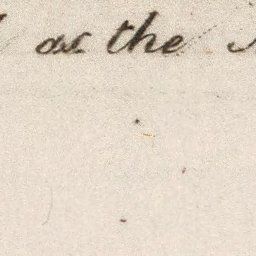 as the